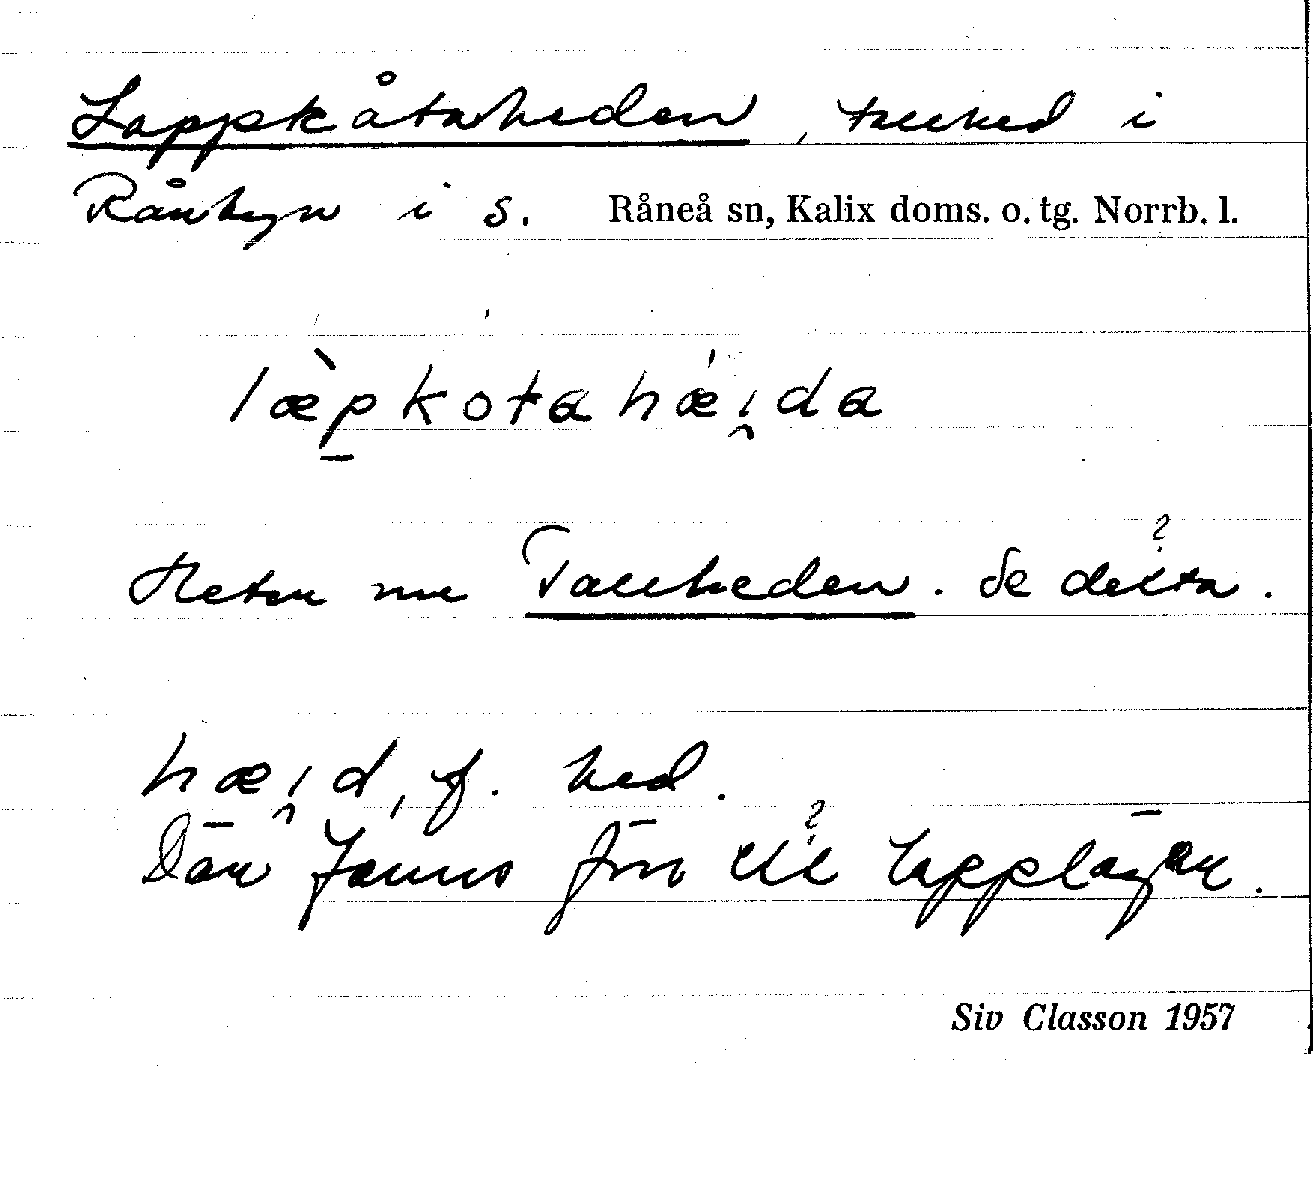 Lappkåtaheden, tallhed i
Rånbyn i s. Råneå sn, Kalix doms. o. tg. Norrb. l.
læ̀pkotahǽi̯da
Heter nu Tallheden. Se detta.
hæi̯d, f. hed.
Där fanns förr lapplägar.
Siv Classon 1957